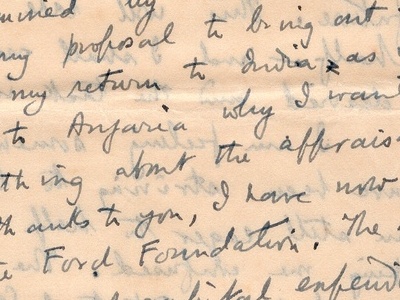 my
my proposal to bring out
my return to India as
to Anjaria why I want
thing about the affrais
thanks to you, I have now
Ford Foundation. The